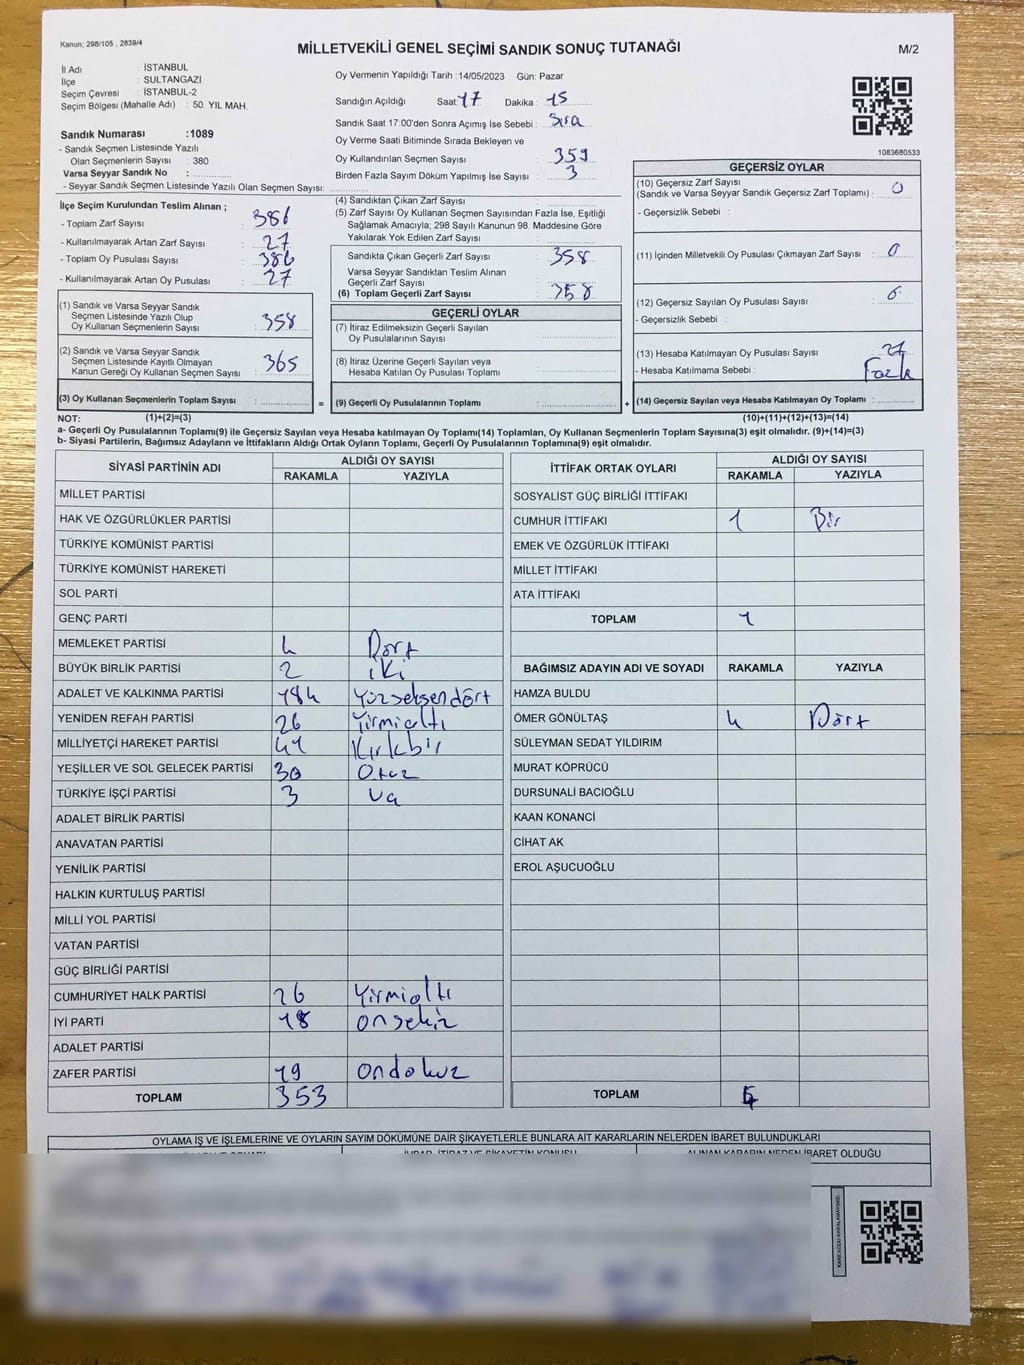 Kanun: 298/105 , 2839/4
MİLLETVEKİLİ GENEL SEÇİMİ SANDIK SONUÇ TUTANAĞI
M/2
İl Adı : İSTANBUL
İlçe : SULTANGAZİ
Seçim Çevresi : İSTANBUL-2
Seçim Bölgesi (Mahalle Adı) : 50. YIL MAH.
Sandık Numarası :1089
- Sandık Seçmen Listesinde Yazılı
Olan Seçmenlerin Sayısı : 380
Varsa Seyyar Sandık No :
- Seyyar Sandık Seçmen Listesinde Yazılı Olan Seçmen Sayısı:
Oy Vermenin Yapıldığı Tarih :14/05/2023 Gün: Pazar
Sandığın Açıldığı Saat: 17 Dakika : 15
Sandık Saat 17:00'den Sonra Açımış İse Sebebi : Sıra
Oy Verme Saati Bitiminde Sırada Bekleyen ve
Oy Kullandırılan Seçmen Sayısı : 359
Birden Fazla Sayım Döküm Yapılmış İse Sayısı : 3
1083680533
İlçe Seçim Kurulundan Teslim Alınan ;
- Toplam Zarf Sayısı : 386
- Kullanılmayarak Artan Zarf Sayısı : 27
- Toplam Oy Pusulası Sayısı : 386
- Kullanılmayarak Artan Oy Pusulası : 27
(1) Sandık ve Varsa Seyyar Sandık
Seçmen Listesinde Yazılı Olup
Oy Kullanan Seçmenlerin Sayısı : 358
(2) Sandık ve Varsa Seyyar Sandık
Seçmen Listesinde Kayıtlı Olmayan
Kanun Gereği Oy Kullanan Seçmen Sayısı : 365
(3) Oy Kullanan Seçmenlerin Toplam Sayısı :
(4) Sandıktan Çıkan Zarf Sayısı :
(5) Zarf Sayısı Oy Kullanan Seçmen Sayısından Fazla İse, Eşitliği
Sağlamak Amacıyla; 298 Sayılı Kanunun 98. Maddesine Göre
Yakılarak Yok Edilen Zarf Sayısı :
Sandıkta Çıkan Geçerli Zarf Sayısı : 358
Varsa Seyyar Sandıktan Teslim Alınan
Geçerli Zarf Sayısı :
(6) Toplam Geçerli Zarf Sayısı : 358
GEÇERLİ OYLAR
(7) İtiraz Edilmeksizin Geçerli Sayılan
Oy Pusulalarının Sayısı :
(8) İtiraz Üzerine Geçerli Sayılan veya
Hesaba Katılan Oy Pusulası Toplamı :
= (9) Geçerli Oy Pusulalarının Toplamı :
GEÇERSİZ OYLAR
(10) Geçersiz Zarf Sayısı
(Sandık ve Varsa Seyyar Sandık Geçersiz Zarf Toplamı) : 0
- Geçersizlik Sebebi :
(11) İçinden Milletvekili Oy Pusulası Çıkmayan Zarf Sayısı : 0
(12) Geçersiz Sayılan Oy Pusulası Sayısı : 0
- Geçersizlik Sebebi :
(13) Hesaba Katılmayan Oy Pusulası Sayısı : 27
- Hesaba Katılmama Sebebi : Fazla
+ (14) Geçersiz Sayılan veya Hesaba Katılmayan Oy Toplamı :
NOT: (1)+(2)=(3)
(10)+(11)+(12)+(13)=(14)
a- Geçerli Oy Pusulalarının Toplamı(9) ile Geçersiz Sayılan veya Hesaba katılmayan Oy Toplamı(14) Toplamları, Oy Kullanan Seçmenlerin Toplam Sayısına(3) eşit olmalıdır. (9)+(14)=(3)
b- Siyasi Partilerin, Bağımsız Adayların ve İttifakların Aldığı Ortak Oyların Toplamı, Geçerli Oy Pusulalarının Toplamına(9) eşit olmalıdır.
SİYASİ PARTİNİN ADI
ALDIĞI OY SAYISI
RAKAMLA YAZIYLA
MİLLET PARTİSİ
HAK VE ÖZGÜRLÜKLER PARTİSİ
TÜRKİYE KOMÜNİST PARTİSİ
TÜRKİYE KOMÜNİST HAREKETİ
SOL PARTİ
GENÇ PARTİ
MEMLEKET PARTİSİ 4 Dört
BÜYÜK BİRLİK PARTİSİ 2 iki
ADALET VE KALKINMA PARTİSİ 184 Yüzseksendört
YENİDEN REFAH PARTİSİ 26 Yirmialtı
MİLLİYETÇİ HAREKET PARTİSİ 41 Kırkbir
YEŞİLLER VE SOL GELECEK PARTİSİ 30 Otuz
TÜRKİYE İŞÇİ PARTİSİ 3 üç
ADALET BİRLİK PARTİSİ
ANAVATAN PARTİSİ
YENİLİK PARTİSİ
HALKIN KURTULUŞ PARTİSİ
MİLLİ YOL PARTİSİ
VATAN PARTİSİ
GÜÇ BİRLİĞİ PARTİSİ
CUMHURİYET HALK PARTİSİ 26 Yirmialtı
İYİ PARTİ 18 onsekiz
ADALET PARTİSİ
ZAFER PARTİSİ 19 ondokuz
TOPLAM 353
İTTİFAK ORTAK OYLARI
ALDIĞI OY SAYISI
RAKAMLA YAZIYLA
SOSYALİST GÜÇ BİRLİĞİ İTTİFAKI
CUMHUR İTTİFAKI 1 Bir
EMEK VE ÖZGÜRLÜK İTTİFAKI
MİLLET İTTİFAKI
ATA İTTİFAKI
TOPLAM 1
BAĞIMSIZ ADAYIN ADI VE SOYADI RAKAMLA YAZIYLA
HAMZA BULDU
ÖMER GÖNÜLTAŞ 4 Dört
SÜLEYMAN SEDAT YILDIRIM
MURAT KÖPRÜCÜ
DURSUNALİ BACIOĞLU
KAAN KONANCİ
CİHAT AK
EROL AŞUCUOĞLU
TOPLAM
OYLAMA İŞ VE İŞLEMLERİNE VE OYLARIN SAYIM DÖKÜMÜNE DAİR ŞİKAYETLERLE BUNLARA AİT KARARLARIN NELERDEN İBARET BULUNDUKLARI
ALINAN KARARIN NEDEN İBARET OLDUĞU